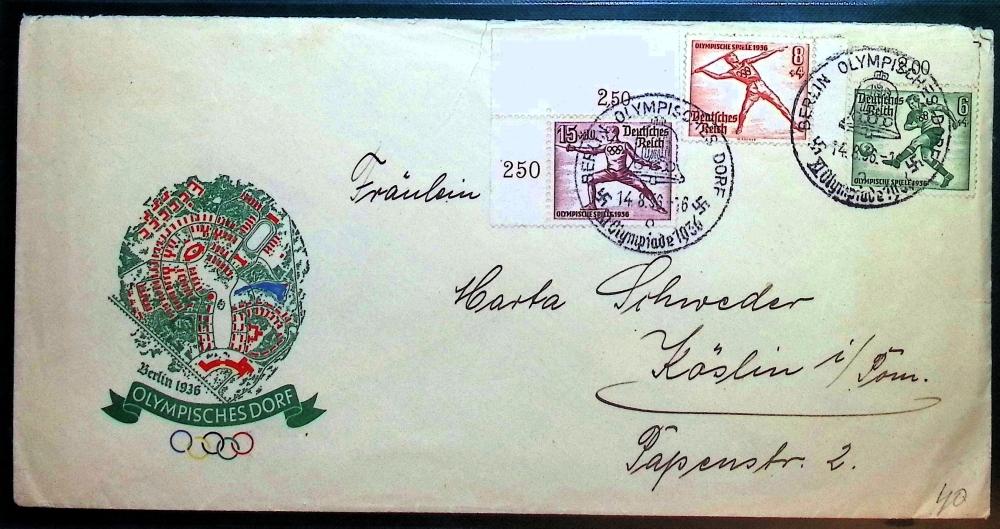 OLYMPISCHE SPIELE 1936
8
+4
Deutsches
Reich
2,00
BERLIN OLYMPISCHES DORF
6
+4
Deutsches
Reich
14.8.36
XI. Olympiade 1936
OLYMPISCHE SPIELE 1936
2,50
250
15+10
Deutsches
Reich
BERLIN OLYMPISCHES DORF
14.8.36
XI. Olympiade 1936
OLYMPISCHE SPIELE 1936
Fräulein
Marta Schweder
Köslin i/Pom.
Papenstr. 2.
Berlin 1936
OLYMPISCHES DORF
40